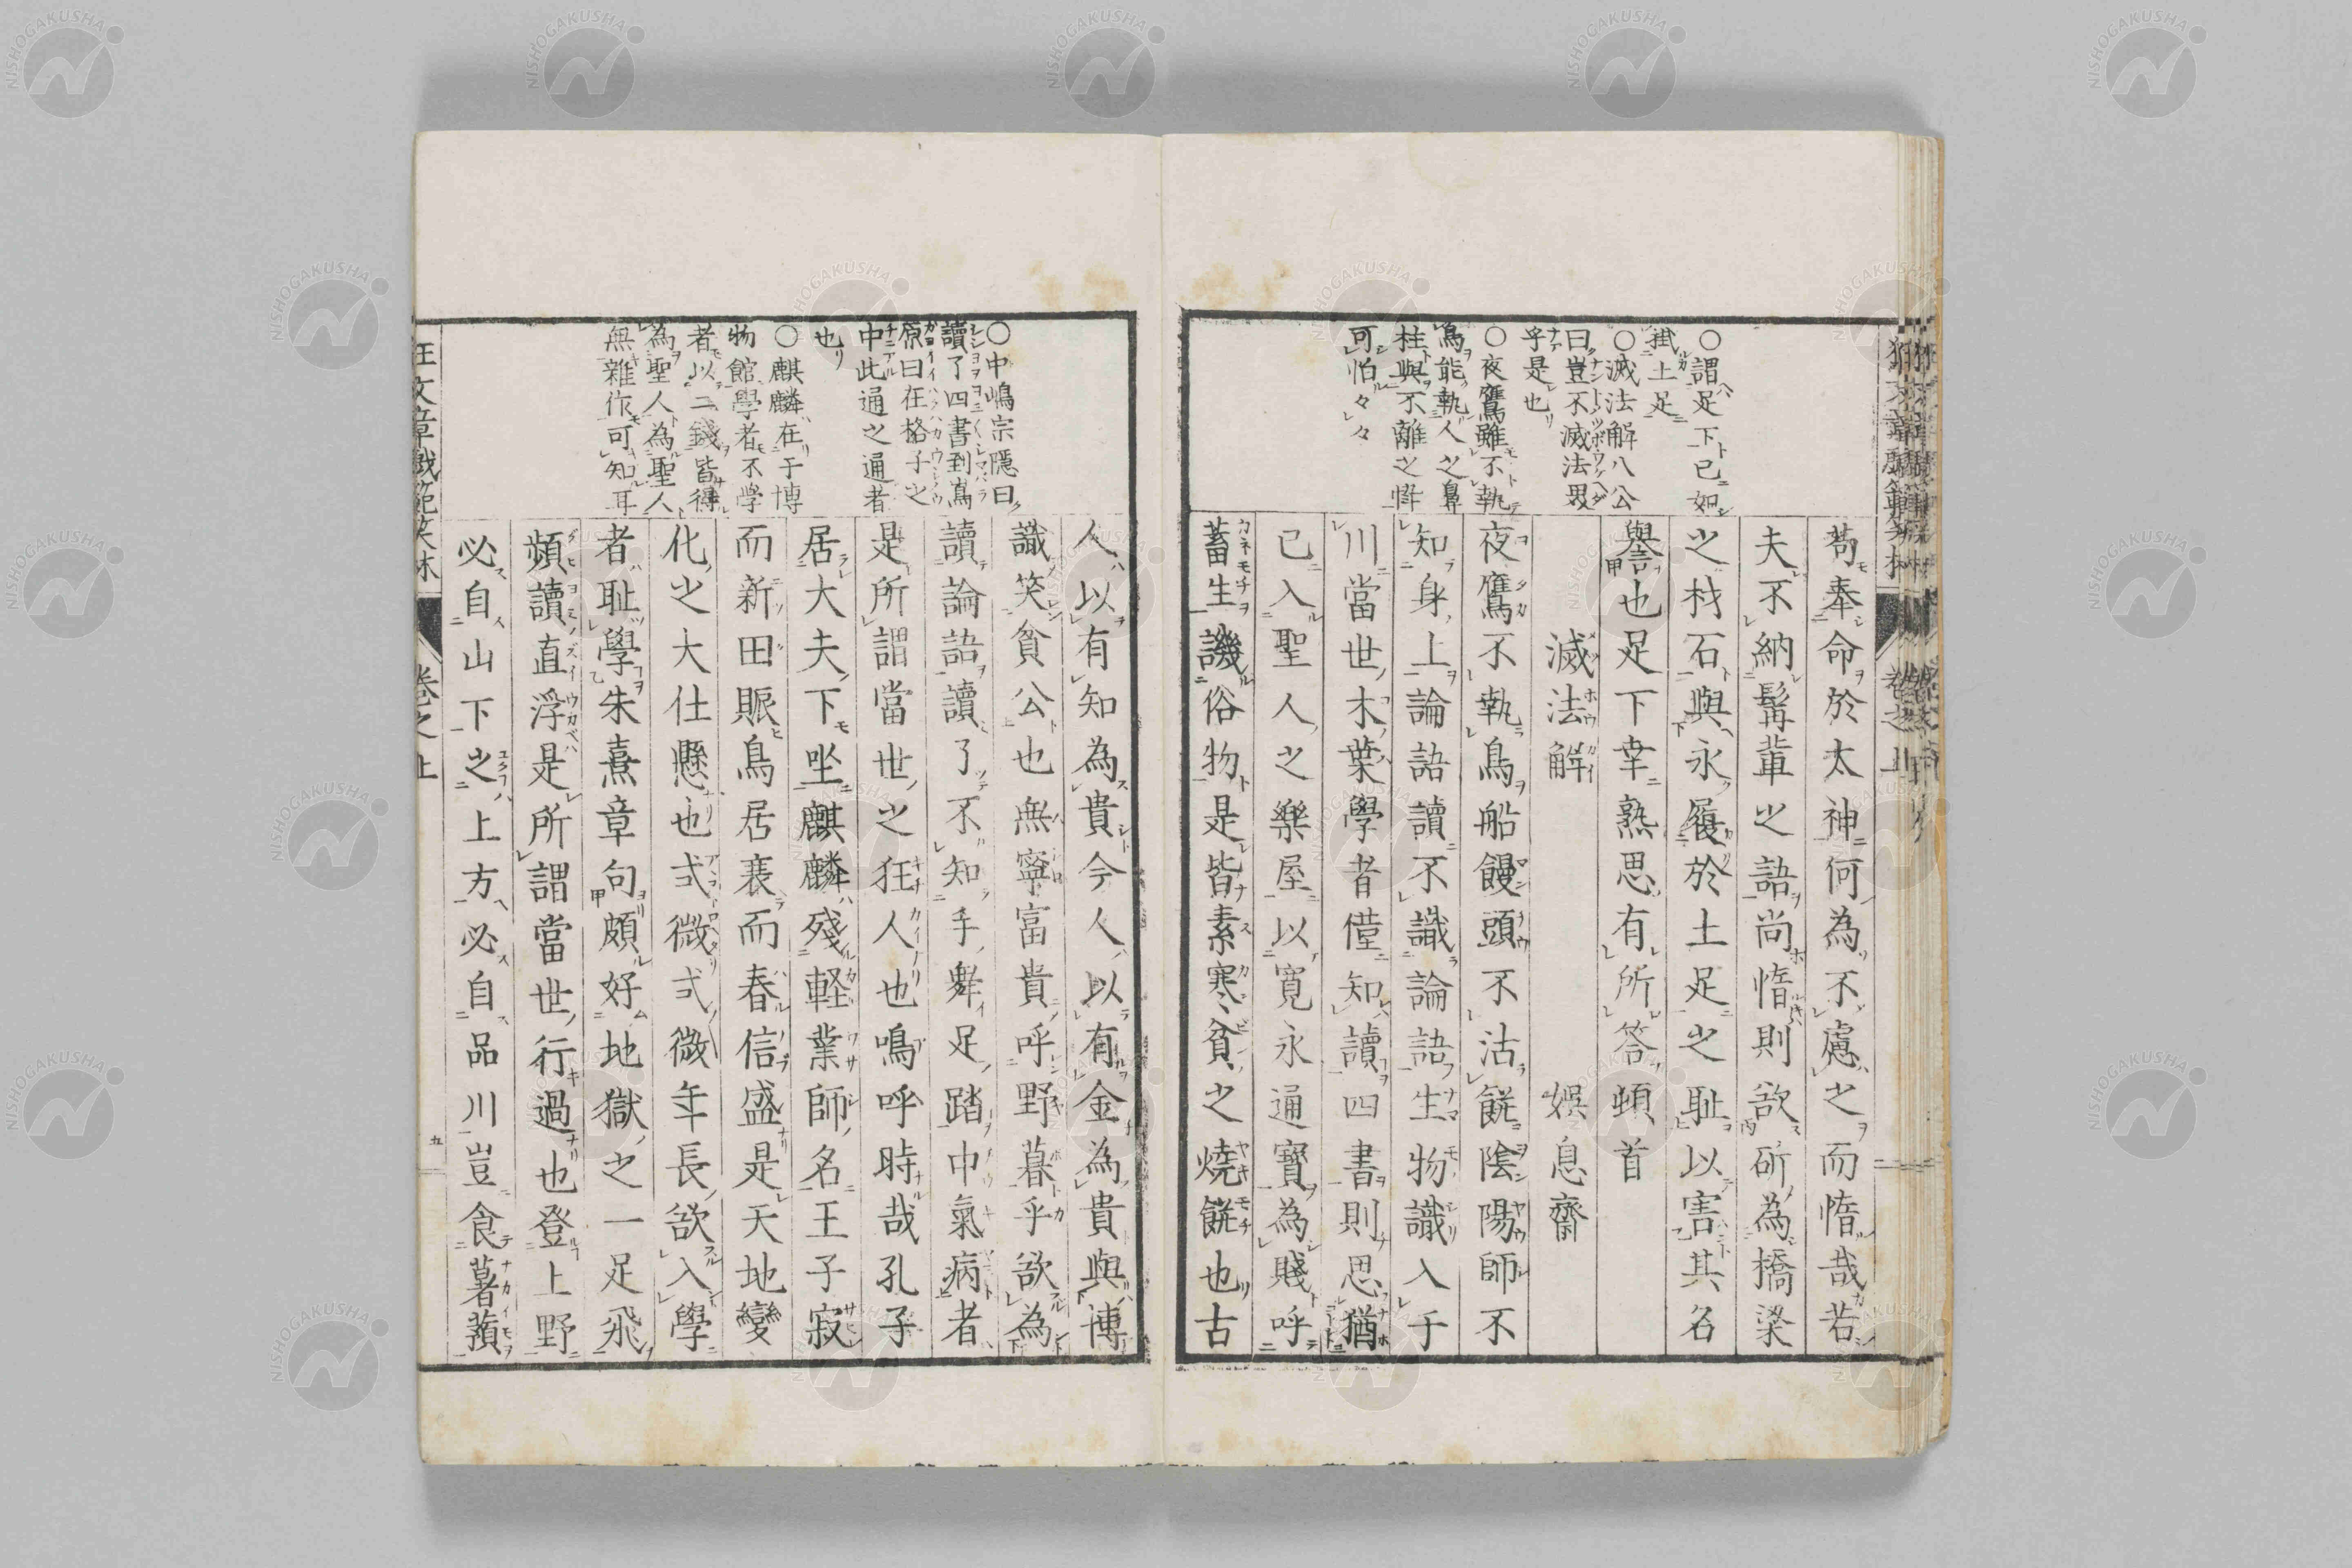 ○謂足下已如
掛上足
○滅法解八公
曰豈不滅法畏
乎是也
○夜鷹雖不執
鳥能執人之鼻
柱與不離之悴
可怕々々
苟奉命於太神何為不慮之而惰哉若
夫不納髯輩之語尚惰則欲斫為橋梁
之材石與永履於土足之耻以害其名
譽也足下幸熟思有所答頓首
滅法解　娯息齋
夜鷹不執鳥船饅頭不沽餻陰陽師不
知身上論語讀不識論語生物識入于
川當世木葉學者僅知讀四書則思猶
已入聖人之樂屋以寛永通寶為賤呼
蓄生譏俗物是皆素寒貧之燒餅也古
○中嶋宗隱曰
讀了四書到嶌
原曰在格子之
中此通之通者
也
○麒麟在于博
物館學者不学
者以二錢皆得
為聖人為聖人
無雜作可知耳
人以有知為貴今人以有金為貴與博
識笑貧公也無寧富貴呼野暮乎欲為
讀論語讀了不知手舞足踏中氣病者
是所謂當世之狂人也鳴呼時哉孔子
居大夫下坐麒麟殘軽業師名王子寂
而新田賑鳥居衰而春信盛是天地變
化之大仕懸也式微式微年長欲入學
者耻學朱熹章句頗好地獄之一足飛
頻讀直浮是所謂當世行過也登上野
必自山下之上方必自品川豈食薯蕷
狂文章戯範笑林
卷之上
五
NISHOGAKUSHA